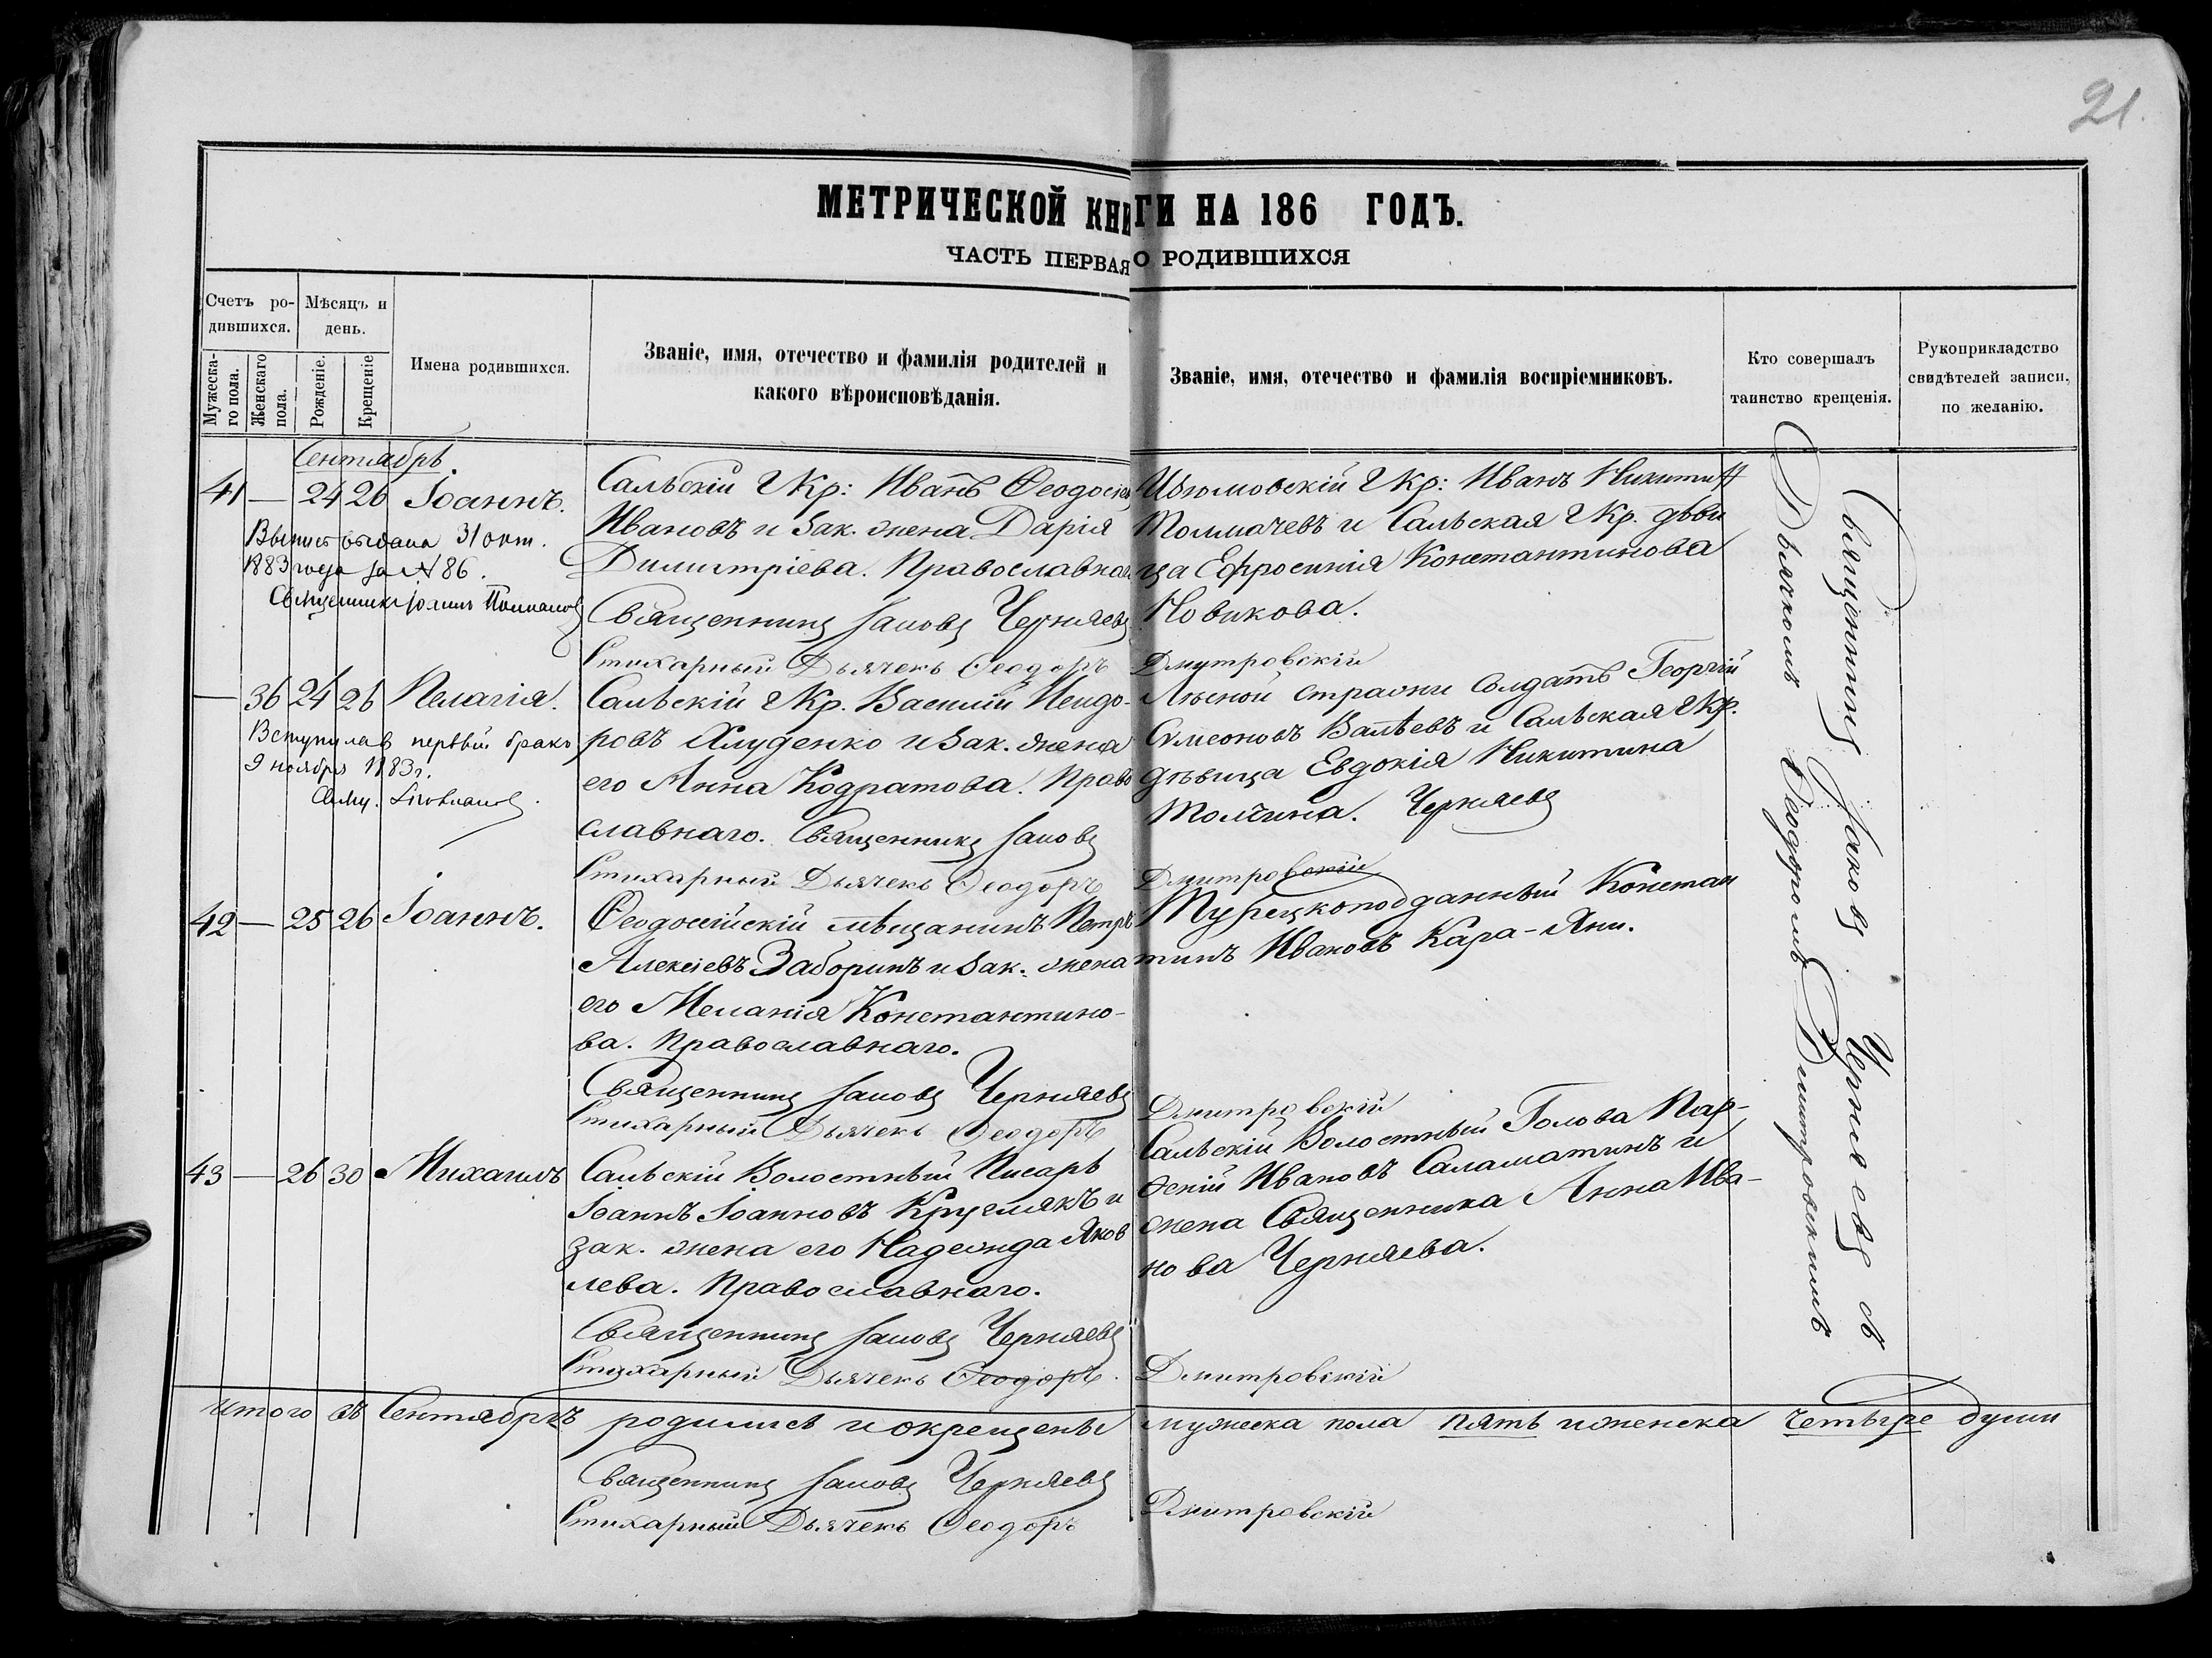 21.
МЕТРИЧЕСКОЙ КНИГИ НА 186 ГОДЪ.
ЧАСТЬ ПЕРВАЯ О РОДИВШИХСЯ
Счетъ ро-
дившихся.
Мужеска-
го пола.
Женскаго
пола.
Мѣсяцъ и
день.
Рожденіе.
Крещеніе
Имена родившихся.
Званіе, имя, отечество и фамилія родителей и
какого вѣроисповѣданія.
Званіе, имя, отечество и фамилія воспріемниковъ.
Кто совершалъ
таинство крещенія.
Рукоприкладство
свидѣтелей записи,
по желанію.
Сентябрь.
41 — 24 26 Іоаннъ.
Выпись выдана 31 окт.
1883 года за № 86.
Священникъ
Сальскій Г Кр: Иванъ Ѳеодосіев
Ивановъ и Зак. жена Дарія
Димитріева. Православнаго
Священникъ Іаковъ Черняевъ
Стихарный Дьячекъ Ѳеодоръ Дмитровскій
Изюмовскій Г Кр: Иванъ Никитин
Толмачевъ и Сальская Г Кр. дѣви
ца Ефросинія Константинова
Новикова.
— 36 24 26 Пелагія.
Вступила в первый бракъ
9 ноября 1883 г.
Свящ.
Сальскій Г Кр. Василій Исидо-
ровъ Хлуденко и Зак. жена
его Анна Кодратова. Право
славнаго. Священникъ Іаковъ Черняевъ
Стихарный Дьячекъ Ѳеодоръ Дмитровскій
Лѣсной стражи Солдатъ Георгій
Симеоновъ Валѣевъ и Сальская Г Кр.
дѣвица Евдокія Никитина
Толчина.
42 — 25 26 Іоаннъ.
Ѳеодосійскій мѣщанинъ Петръ
Алексіевъ Заборинъ и Зак. жена
его Меланія Константино-
ва. Православнаго.
Священникъ Іаковъ Черняевъ
Стихарный Дьячекъ Ѳеодоръ Дмитровскій
Турецкоподданный Констан
тинъ Ивановъ Кара-Яни.
43 — 26 30 Михаилъ
Сальскій Волостный Писарь
Іоаннъ Іоанновъ Круглякъ и
зак. жена его Надежда Яков
лева. Православнаго.
Священникъ Іаковъ Черняевъ
Стихарный Дьячекъ Ѳеодоръ Дмитровскій
Сальскій Волостный Голова Пар-
ѳеній Ивановъ Саламатинъ и
жена Священника Анна Ива-
нова Черняева.
Священникъ Іаковъ Черняевъ съ
Дьячкомъ Ѳеодоромъ Дмитровскимъ
Итого въ Сентябрѣ родились и окрещены мужеска пола пять и женска четыре души
Священникъ Іаковъ Черняевъ
Стихарный Дьячекъ Ѳеодоръ Дмитровскій